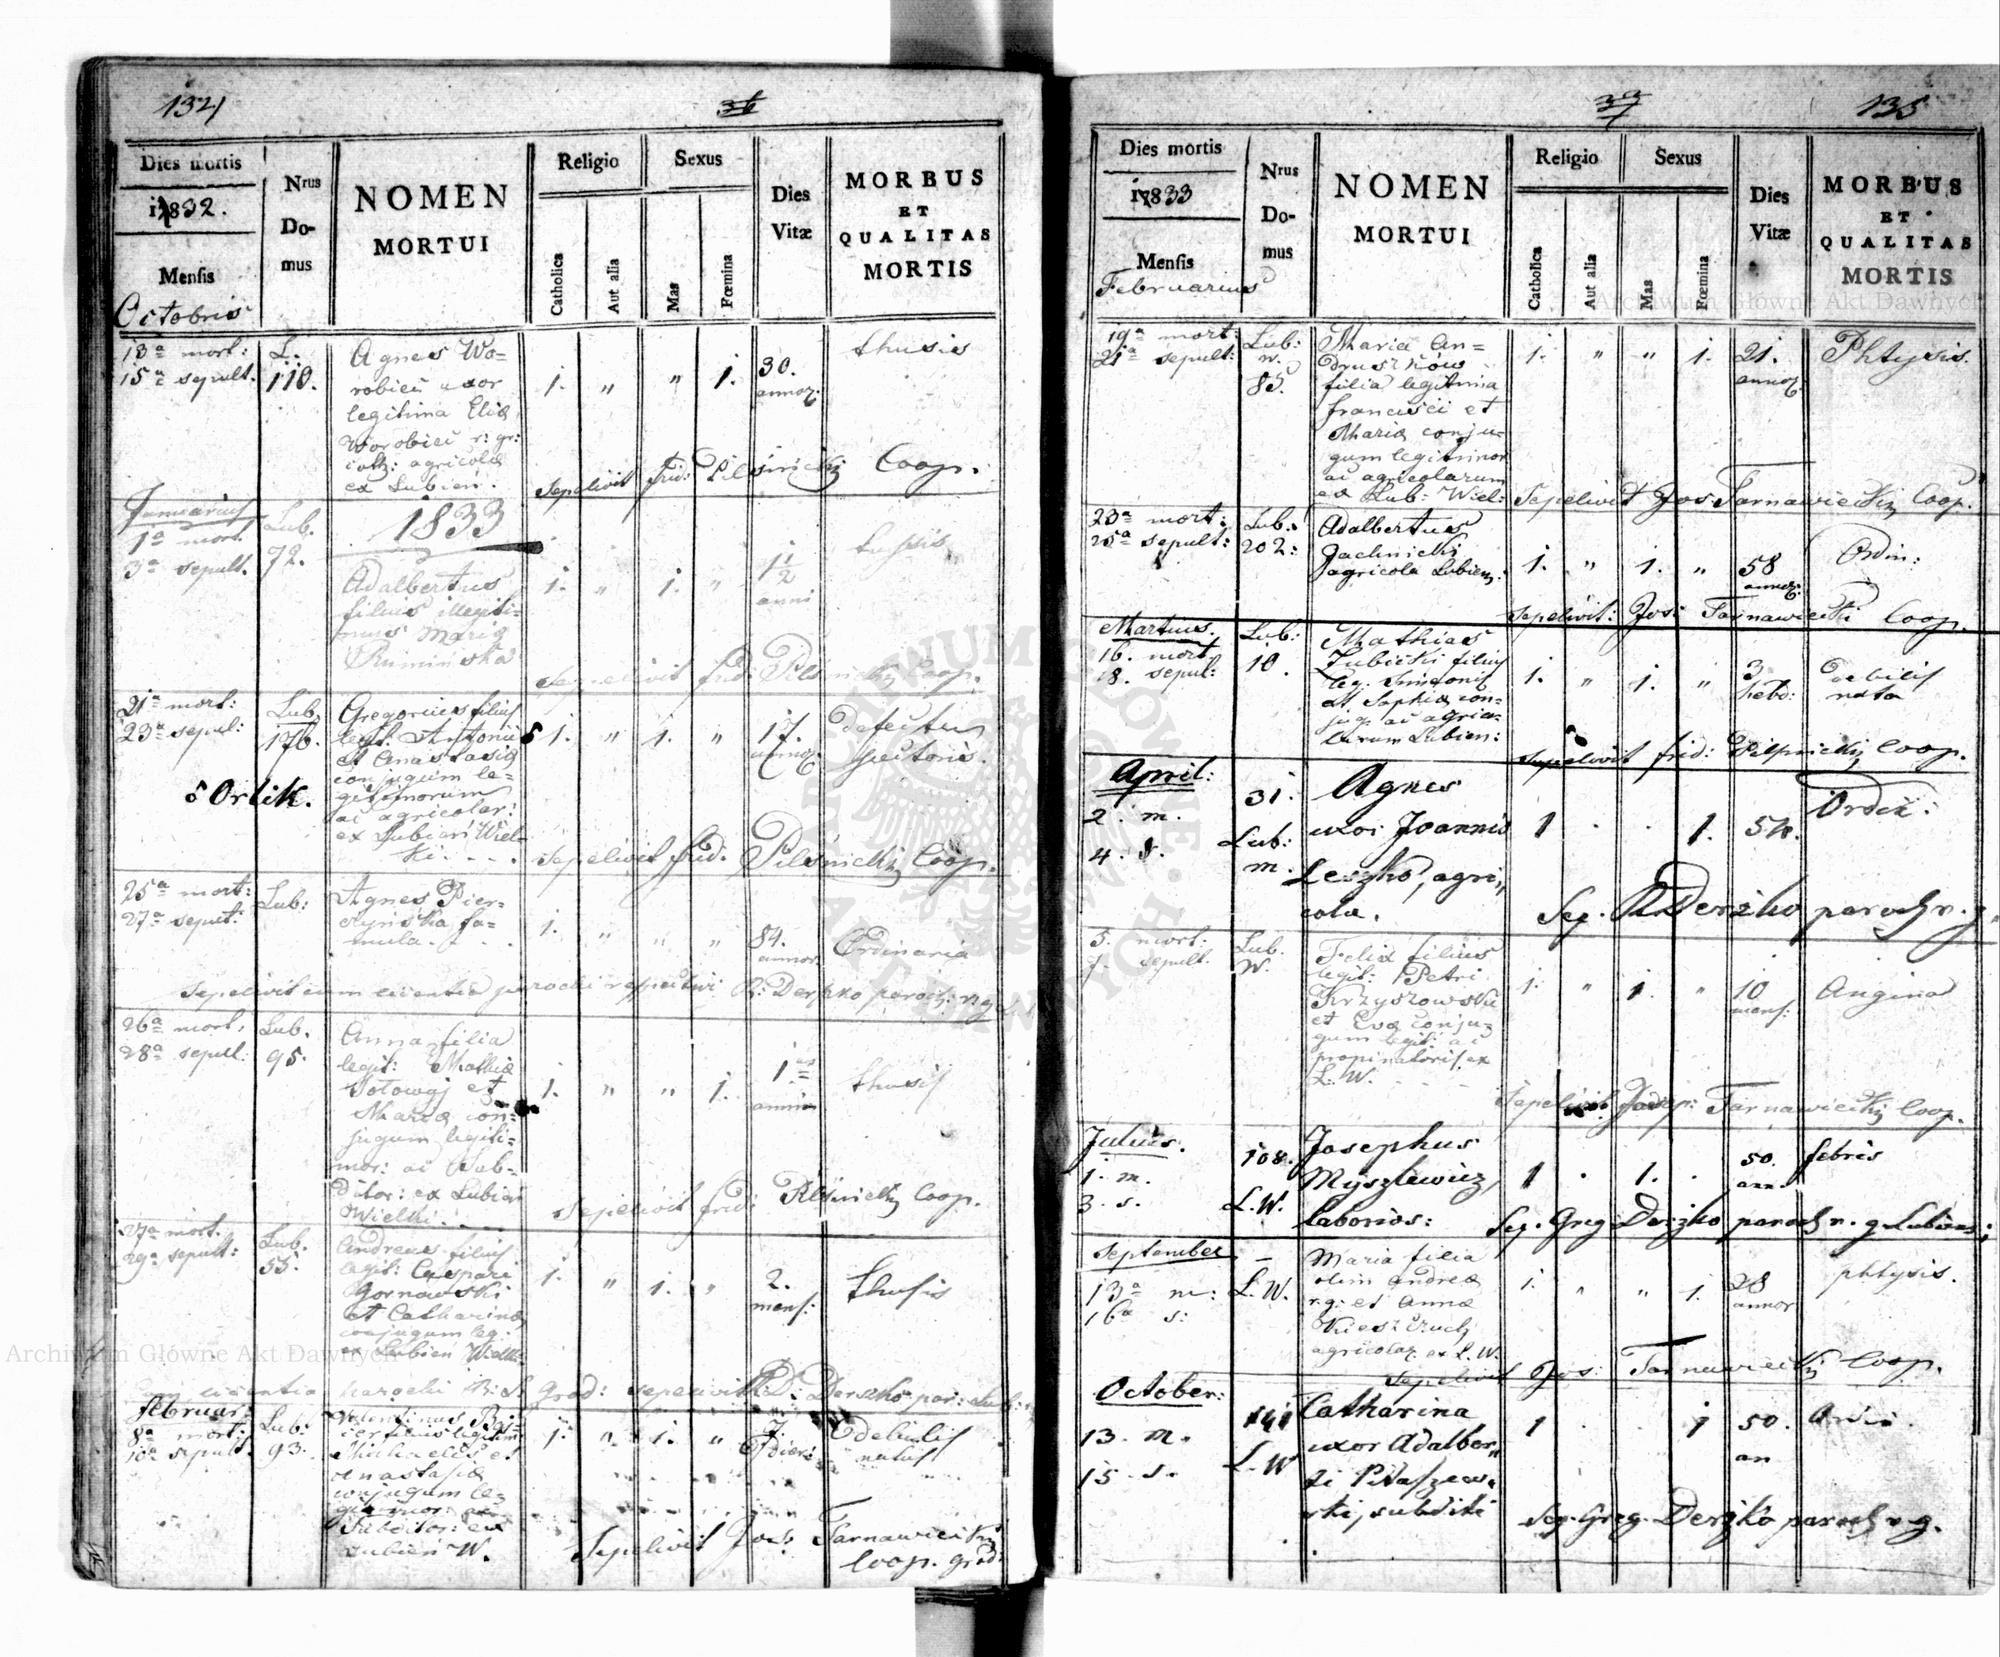 134
36
Dies mortis
1832.
Mensis
Octobris
Nrus
Do-
mus
NOMEN
MORTUI
Religio
Catholica
Aut alia
Sexus
Mas
Fœmina
Dies
Vitæ
MORBUS
ET
QUALITAS
MORTIS
13a mort:
15a sepult.
L.
110.
Agnes Wo-
robiec uxor
legitima Eliæ
Worobiec r: gr:
cath: agricolæ
ex Lubien.
1. " " 1.
30.
annor:
thusis
Sepelivit frid: Pilsnicky Coop.
Januarius
1833
1a mort.
3a sepult.
Lub.
72.
Adalbertus
filius illegiti-
mus Maria
Ruminska
1. " 1. "
1 1/2
anni
tussis
Sepelivit frid: Pilsnicky Coop.
21a mort:
23a sepul:
Lub.
176.
Gregorius filius
legt. Antonii δ
et Anastasia
conjugum le-
gitimorum
ac agricolar:
ex Lubien Wiel-
ki. - - .
δ Orlik.
1. " 1. "
17.
annor
defectus
pectoris.
Sepelivit frid. Pilsnicky Coop.
25a mort:
27a sepult:
Lub:
Agnes Pier-
fa-
mula.
1. " " "
84.
annor.
Ordinaria
Sepelivit cum licentia parochi R: Derzko paroch: r. g.
26a mort.
28a sepul:
Lub.
95.
Anna filia
legit: Mathiæ
et
Maria con-
jugum legiti-
mor: ac Sub-
ditor: ex Lubien
Wielki.
1. " " 1.
thusis
Sepelivit frid: Pilsnicky Coop.
27a mort.
29a sepult:
Lub.
55.
Andreas filius
legit: Caspari
Gornowski
et Catharina
conjugum leg:
ex Lubien Wielki
1. " 1. "
2.
mens:
thusis
Cum licentia parochi Grod: sepelivit Derszko par:
Februar:
8a mort:
10a sepult.
Lub:
93.
Valentinus
filius legitim
Michaelis et
Anastasiæ
conjugum le-
gitimor: ac
Subditor: ex
Lubien W.
1. " 1. "
7
dier:
debilis
natus
Sepelivit Jos: Tarnawiecki
Coop. grod:
37
135
Dies mortis
1833
Mensis
Februarius
Nrus
Do-
mus
NOMEN
MORTUI
Religio
Catholica
Aut alia
Sexus
Mas
Fœmina
Dies
Vitæ
MORBUS
ET
QUALITAS
MORTIS
19a mort:
21a sepult:
Lub:
w.
85.
Maria An-
druszków
filia legitima
Francisci et
Mariæ conju-
gum legitimor
ac agricolarum
ex Lub: Wiel:
1. " " 1.
21.
annor.
Phtysis.
Sepelivit Jos Tarnawiecky Coop.
23a mort:
25a sepult:
Lub.
202:
Adalbertus
Jachnicki
agricola Lubien:
1. " 1. "
58
annor:
Ordin:
Sepelivit: Jos: Tarnawiecki Coop.
Martius.
16. mort
18. sepul:
Lub:
10.
Mathias
Zubicki filius
leg: Simeonis
et Sophiæ con-
jug: ac agrico-
larum Lubien:
1. " 1. "
3
hebd:
debilis
nata
Sepelivit frid: Pilsnicky Coop.
April:
2. m.
4. s.
31.
Lub:
m.
Agnes
uxor Joannis
Leszko, agri,,
cola.
1 . . 1.
Ordin:
Sep. Derzko paroch r. g.
5. mort:
7. sepult.
Lub.
W.
Felix filius
legit: Petri
Krzyszowski
et Eva conju-
gum legit: ac
propinatoris ex
L. W.
1. " 1. "
10
mens:
Angina
Sepelivit Josep: Tarnawiecky Coop.
Julius.
1. m.
3. s.
108.
L. W.
Josephus
Myszlewicz,
laborios:
1 . 1. .
50.
ann.
febris
Sep. Greg Derzko paroch r. g Lubien:
September.
13a m:
16a s:
L. W.
Maria filia
olim Andreæ
r. g: et Annæ
agricolar. ex L. W.
1. " " 1.
28
annor
phtysis.
Sepelivit Jos: Tarnawiecky Coop.
October:
13. m.
15. s.
141
L. W
Catharina
uxor Adalber,,
ti Pitaszew-
ski, subditi
1 . . 1
50.
an
Ordin.
Sep. Greg. Derzko paroch r. g.
Archiwum Główne Akt Dawnych
Archiwum Główne Akt Dawnych
ARCHIWUM GŁÓWNE AKT DAWNYCH